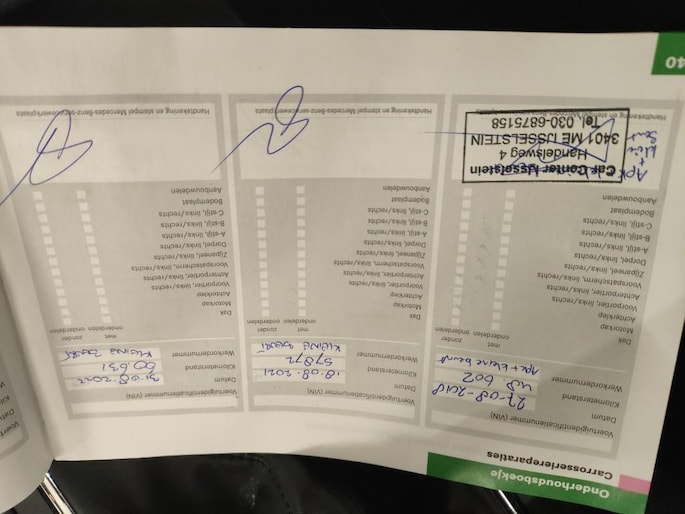 Onderhoudsboekje
Carrosseriereparaties
Voertuigidentificatienummer (VIN)
Datum 27-08-2018
Kilometerstand 48 602
Werkordernummer Apk + kleine beurt
met onderdelen
zonder onderdelen
Dak
Motorkap
Achterklep
Voorportier, links/rechts
Achterportier, links/rechts
Voorspatscherm, links/rechts
Zijpaneel, links/rechts
Dorpel, links/rechts
A-stijl, links/rechts
B-stijl, links/rechts
C-stijl, links/rechts
Bodemplaat
Aanbouwdelen
Apk + kleine beurt
Car Center IJsselstein
Handelsweg 4
3401 ME IJSSELSTEIN
Tel. 030-6875158
Handtekening en stempel Mercedes-Benz-
Voertuigidentificatienummer (VIN)
Datum 18-08-2021
Kilometerstand 57872
Werkordernummer KLEINE BEURT
met onderdelen
zonder onderdelen
Dak
Motorkap
Achterklep
Voorportier, links/rechts
Achterportier, links/rechts
Voorspatscherm, links/rechts
Zijpaneel, links/rechts
Dorpel, links/rechts
A-stijl, links/rechts
B-stijl, links/rechts
C-stijl, links/rechts
Bodemplaat
Aanbouwdelen
Handtekening en stempel Mercedes-Benz-servicewerkplaats
Voertuigidentificatienummer (VIN)
Datum 31-08-2022
Kilometerstand 60 631
Werkordernummer KLEINE BEURT
met onderdelen
zonder onderdelen
Dak
Motorkap
Achterklep
Voorportier, links/rechts
Achterportier, links/rechts
Voorspatscherm, links/rechts
Zijpaneel, links/rechts
Dorpel, links/rechts
A-stijl, links/rechts
B-stijl, links/rechts
C-stijl, links/rechts
Bodemplaat
Aanbouwdelen
Handtekening en stempel Mercedes-Benz-servicewerkplaats
40
Datum